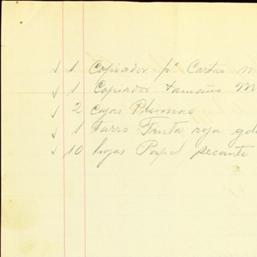 √ 1 Copiador pª Cartas
√ 1 Copiador tamaño
√ 2 cajas Plumas
√ 1 tarro Tinta roja
√ 10 hojas Papel secante